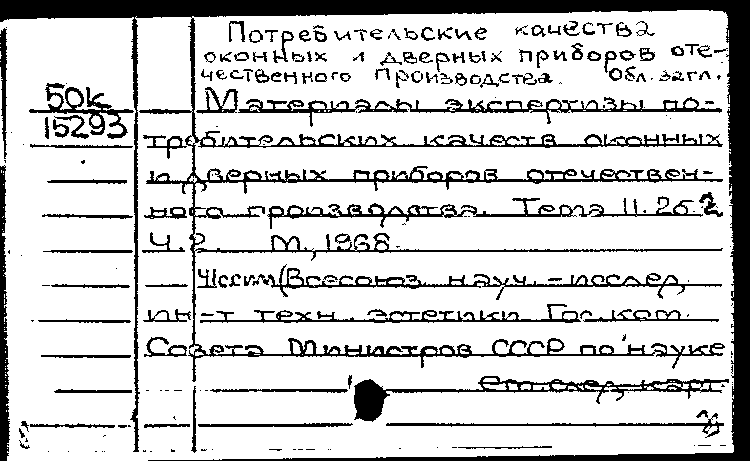 Потребительские качества
оконных и дверных приборов оте-
чественного производства. Обл. загл.
50к
15293
Материалы экспертизы по-
требительских качеств оконных
и дверных приборов отечествен-
ного производства. Тема 11.262
Ч.2. М., 1968.
(Всесоюз. науч.-исслед.
ин-т техн. эстетики Гос. ком.
Совета Министров СССР по науке
см. след. карт.